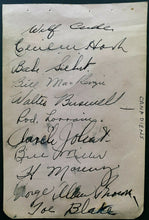 Wilf Cude
Cecil M Hart
Babe Siebert
Bill MacKenzie
Walter Buswell
Rod. Lorrain
Aurel Joliat
Bill Miller
H Morenz
George Allan Brown
Toe Blake
CANADIENS